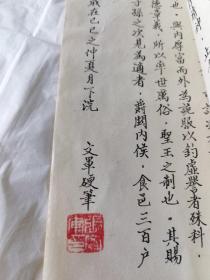 也。與內厚富而外為詭服以釣虛譽者殊科，
德章義，所以率世厲俗，聖王之制也。其賜
子孫之次見為適者，爵關內侯，食邑三百户
歲在己巳之仲夏月下浣
文軍硬筆